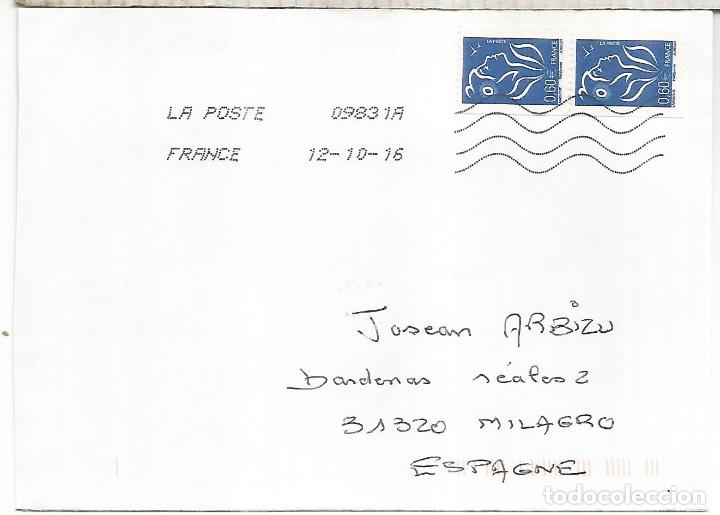 LA POSTE
0,60€ FRANCE
LA POSTE
0,60€ FRANCE
LA POSTE 09831A
FRANCE 12-10-16
Josean ARBIZU
Bardenas réales 2
31320 MILAGRO
ESPAGNE
todocoleccion